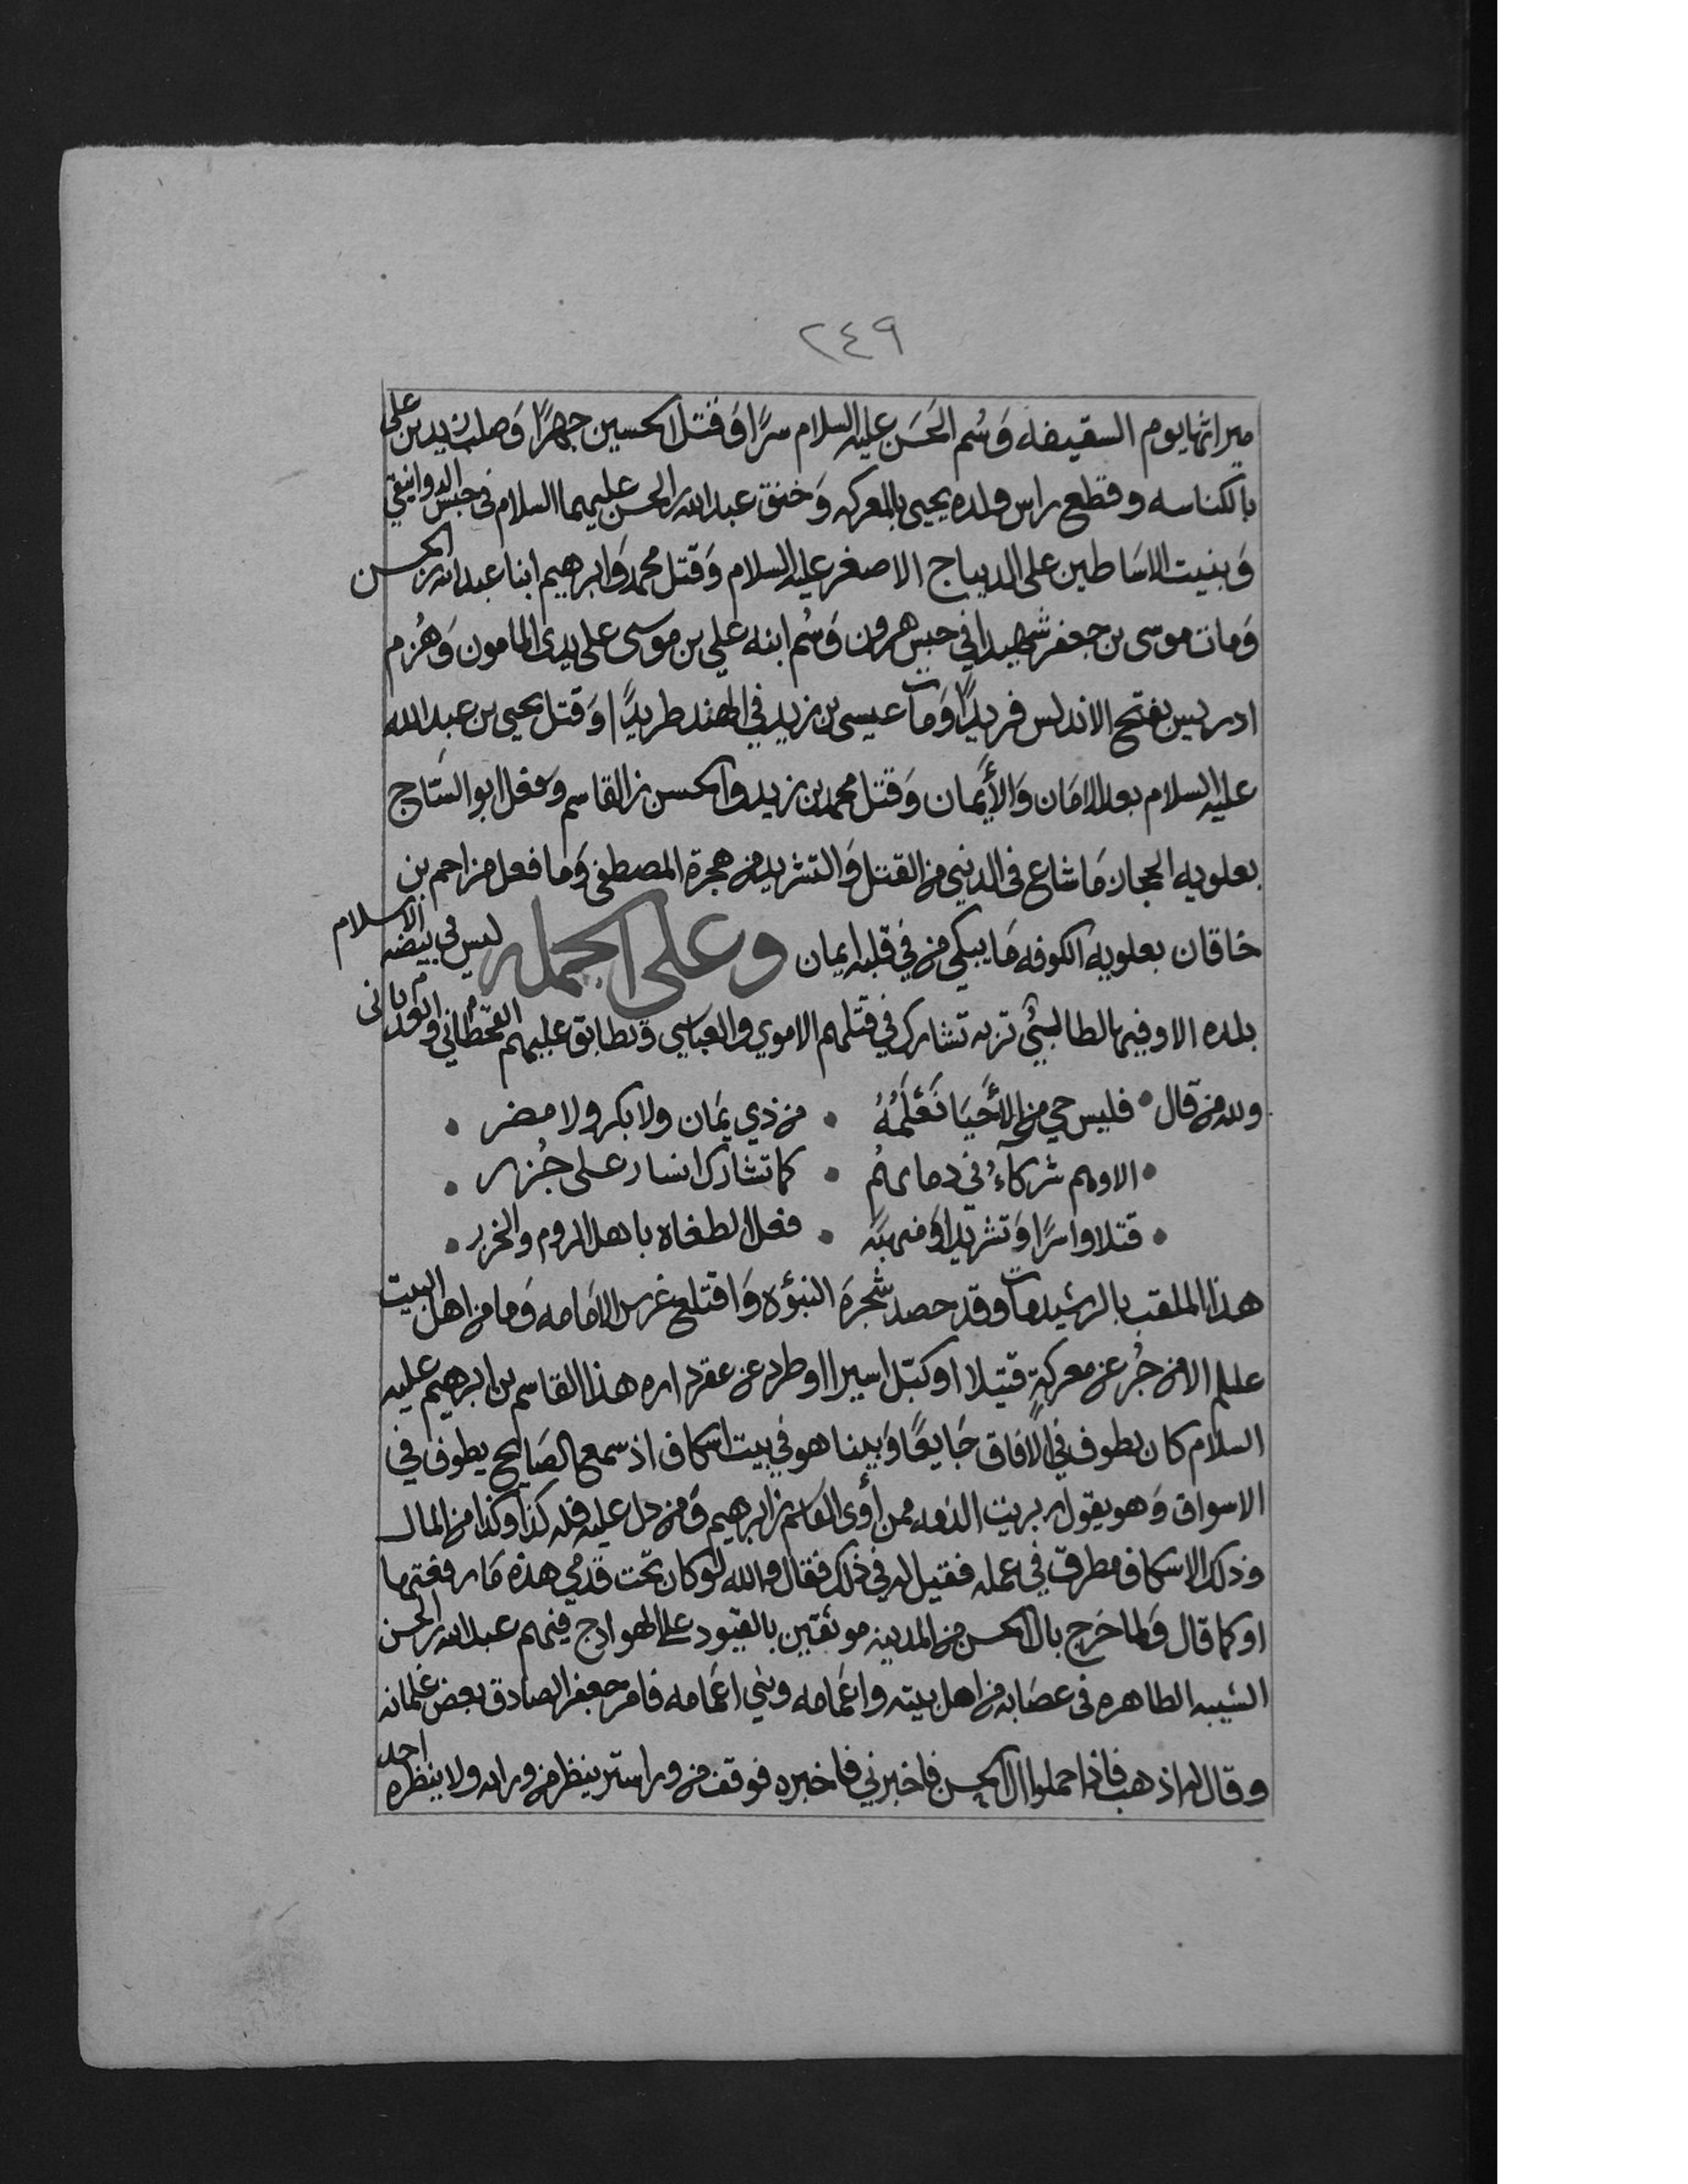 ٢٤٩
ميراثها يوم السقيفه وَسُم الحَسَن عليه السلام سرًا وَقتل الحسين جهرًا وَصلب زيد بن على
بالكناسه وقطع راس ولده يحيى بالمعركه وَخنق عبد الله بن الحسن عليهما السلام في حبس الدوانيقي
وَبنيت الاسَاطين على الديباج الاصغر عليه السلام وَقتل محمد وَابرهيم ابنا عبد الله بن الحسن
وَمات موسى بن جعفر شهيدا في حبس هرون وَسُم ابنه علي بن موسى على يدى المامون وَهُزم
ادريس بفتح الاندلس فريدًا وَمات عيسى بن زيد في الهند طريدًا وَقتل يحيى بن عبد الله
عليه السلام بعد الامَان وَالأيمَان وَقتل محمد بن زيد والحسن بن القاسم وَفعل ابو السّاج
بعلويه الحجاز مَا شاع في الدنيى من القتل وَالتشريد من هجرة المصطفى وَما فعل مزاحم بن
خاقان بعلويه الكوفه مَا يبكى من في قلبه ايمان وعلى الجمله ليس في بيضه الاسلام
بلده الا وفيها لطالبيٍّ تربه تشارك في قتلهم الاموي والعباسي وتطابق عليهم القحطاني والعدناني
ولله من قال • فليس حي من الأحيَا نَعْلَمُهُ • من ذي يمَان ولا بكر ولا مضر •
• الا وهم شركآءُ في دمائهُم • كما تشارك ايسار على جُزر •
• قتلا واسرًا وَتشريدا وَمنهبَه • فعل الطغاه باهل الروم والخزر •
هذا الملقب بالرشيد مات وقد حصد شجرَة النبوّه وَاقتلع غرس الامَامه وَما من اهل البيت
عللم الا من جُر عن معركةٍ قتيلا او كبّل اسيرا او طرد عن عقر داره هذا القاسم بن ابرهيم عليه
السلام كان يطوف في الافاق جَايعًا وَبينا هو في بيت اسكاف اذ سمع الصَايح يطوف في
الاسواق وَهو يقول بريت الذمه ممن أوى القاسم بن ابرهيم وَمن دل عليه فله كذا وكذا من المال
وذلك الاسكاف مطرق في عمله فقيل له في ذلك فقال والله لو كان تحت قدمي هذه مَا رفعتها
او كما قال وَلما خَرج بال الحسن من المدينه موثقين بالقيود على الهوادج فيهم عبد الله بن الحسن
الشيبه الطاهره في عصَابه من اهل بيته واعمَامه وبني اعمَامه فامر جعفر الصادق بعض غلمانه
وقال له اذهب فاذا حملوا ال الحسن فاخبرني فاخبره فوقف من ورا ستر ينظر من ورائه ولا ينظره احد